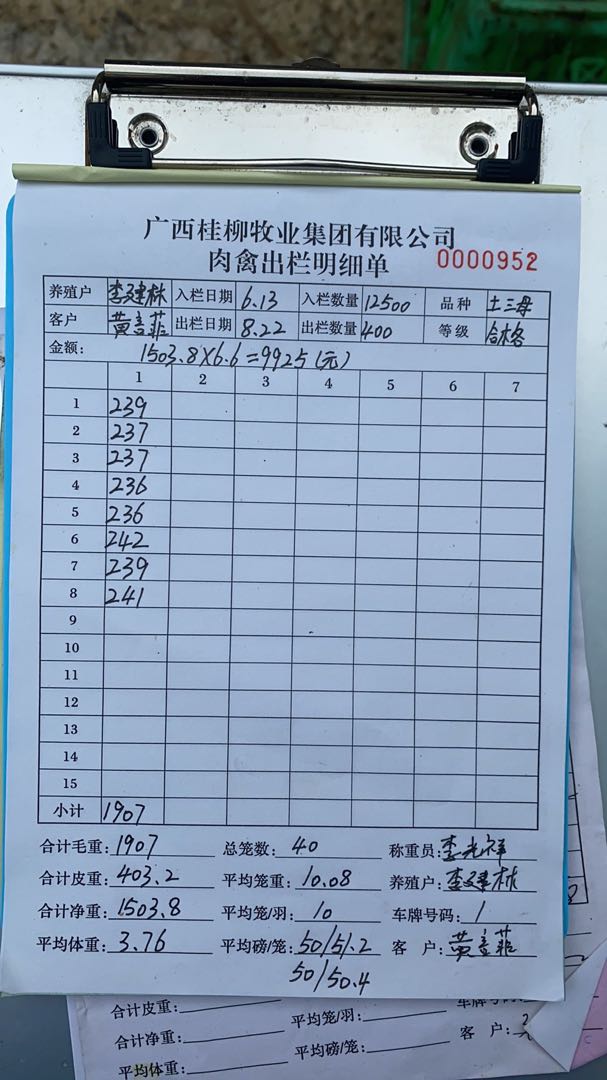 广西桂柳牧业集团有限公司
肉禽出栏明细单 0000952
养殖户 李建林 入栏日期 6.13 入栏数量 12500 品种 土三母
客户 黄言菲 出栏日期 8.22 出栏数量 400 等级 合格
金额: 1503.8×6.6=9925(元)
1 2 3 4 5 6 7
1 239
2 237
3 237
4 236
5 236
6 242
7 239
8 241
9
10
11
12
13
14
15
小计 1907
合计毛重: 1907 总笼数: 40 称重员: 李光祥
合计皮重: 403.2 平均笼重: 10.08 养殖户: 李建林
合计净重: 1503.8 平均笼/羽: 10 车牌号码: 1
平均体重: 3.76 平均磅/笼: 50/51.2 客户: 黄言菲
50/50.4
合计皮重:
合计净重: 平均笼/羽: 客户:
平均体重: 平均磅/笼: